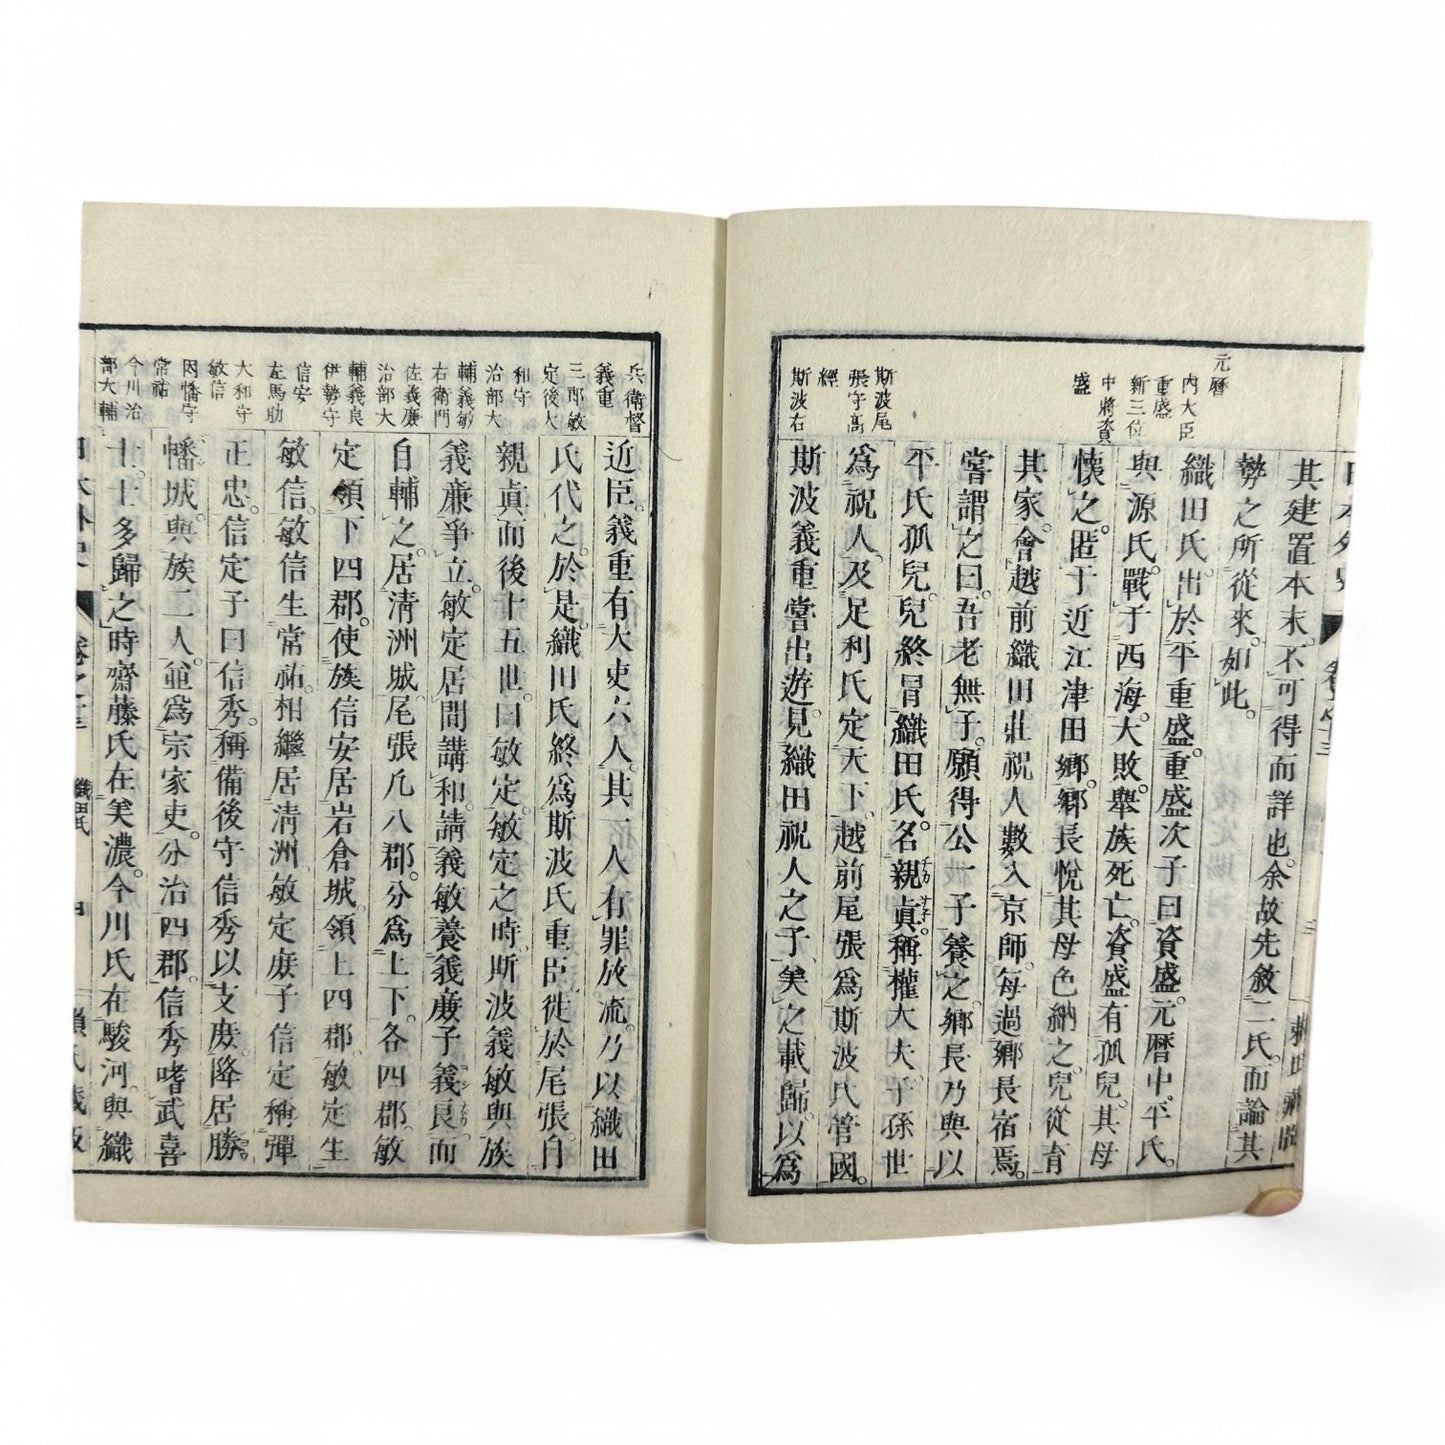 元暦
内大臣
重盛
新三位
中將資
盛
斯波尾
張守高
經
斯波右
其建置本末。不可得而詳也。余故先敘二氏。而論其
勢之所從來。如此。
織田氏。出於平重盛。重盛次子曰資盛。元曆中。平氏。
與源氏。戰于西海。大敗。舉族死亡。資盛有孤兒。其母
懷之。匿于近江津田鄉。鄉長悅其母色納之。兒從育
其家。會越前織田莊祝人數入京師。每過鄉長宿焉。
嘗謂之曰。吾老無子。願得公一子養之。鄉長乃與以
平氏孤兒。兒終冒織田氏。名親眞。稱權大夫。子孫世
爲祝人。及足利氏定天下。越前尾張爲斯波氏管國。
斯波義重嘗出遊。見織田祝人之子。美之。載歸。以爲
兵衛督
義重
三郎敏
定後大
和守
治部大
輔義敏
右衛門
佐義廉
治部大
輔義良
伊勢守
信安
左馬助
大和守
敏信
因幡守
常祐
今川治
部大輔
近臣。義重有大吏六人。其一人有罪放流。乃以織田
氏代之。於是。織田氏終爲斯波氏重臣。徙於尾張。自
親眞而後十五世。曰敏定。敏定之時。斯波義敏與族
義廉爭立。敏定居間講和。請義敏養義廉子義良。而
自輔之。居清洲城。尾張凡八郡。分爲上下。各四郡。敏
定領下四郡。使族信安居岩倉城。領上四郡。敏定生
敏信。敏信生常祐。相繼居清洲。敏定庶子信定稱彈
正忠。信定子曰信秀。稱備後守。信秀以支庶。降居勝
幡城。與族二人。並爲宗家吏。分治四郡。信秀嗜武喜
士。士多歸之。時齋藤氏在美濃。今川氏在駿河。與織
日本外史
卷之十三
織田氏
四
賴氏藏版